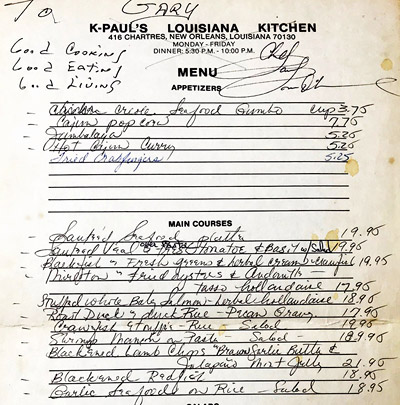 To Gary
K-PAUL'S LOUISIANA KITCHEN
416 CHARTRES, NEW ORLEANS, LOUISIANA 70130
MONDAY - FRIDAY
DINNER: 5:30 P.M. - 10:00 P.M.
Good Cooking
Good Eating
Good Living
Chef
MENU
APPETIZERS
Chicken Creole Seafood Gumbo cup 3.75
Cajun popcorn 7.70
Jambalaya 5.25
Hot Cajun Curry 5.25
Fried Crabfingers 5.25
MAIN COURSES
Seafood platter 19.95
Veal Tomatoe & Basil w/Salad 19.95
Blackfish Fresh greens & herbal cream 19.95
Fried Oysters & Andouille
tasso hollandaise 17.95
Stuffed whole Baby Salmon - herbal hollandaise 18.95
Roast Duck Rice - Pecan Gravy 17.95
Crawfish Etouffee - Rice - Salad 19.95
Shrimp on Pasta - Salad - 18.9.95
Blackened Lamb Chops Brown Garlic Butter &
Jalapeno Mint Jelly 21.95
Blackened Redfish 18.95
Garlic Seafood on Rice - Salad 18.95